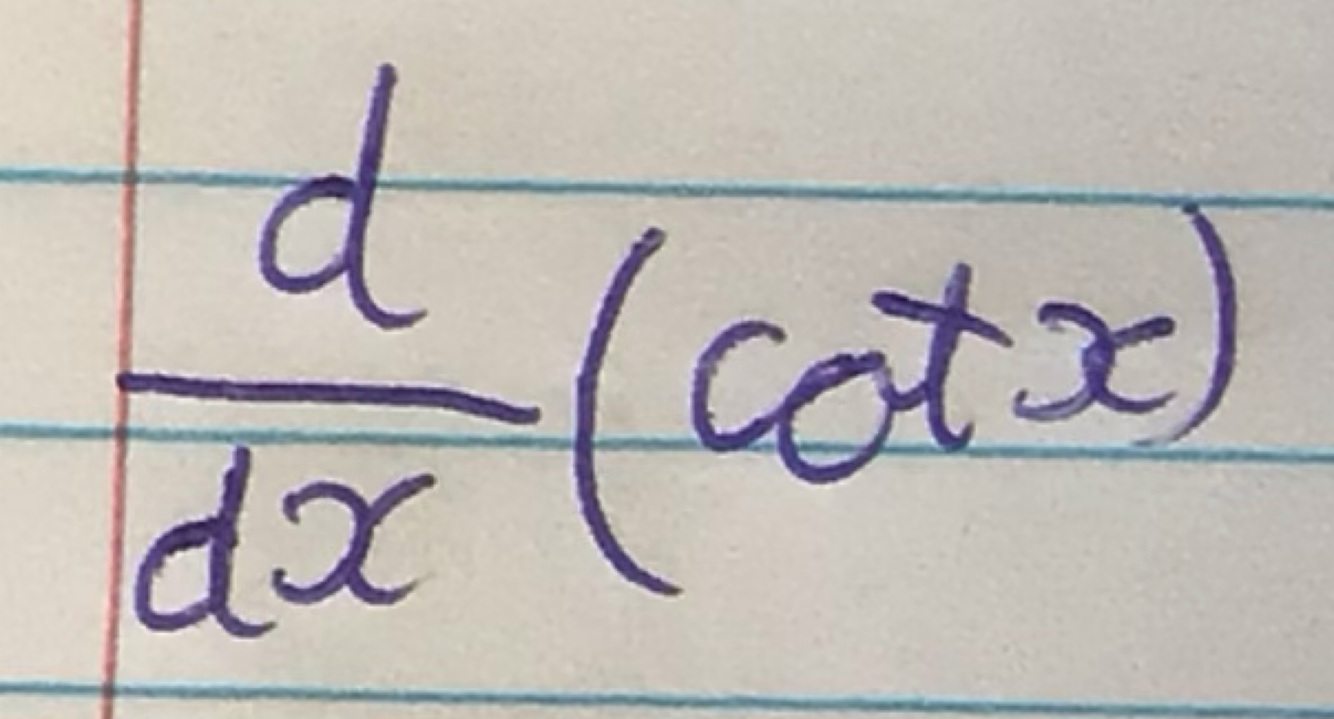 d/dx (cot x)